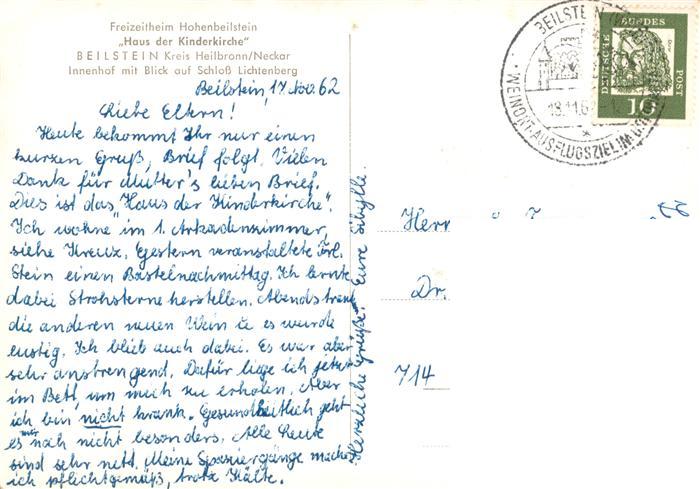 Freizeitheim Hohenbeilstein
„Haus der Kinderkirche"
BEILSTEIN Kreis Heilbronn/Neckar
Innenhof mit Blick auf Schloß Lichtenberg
Beilstein, 17. Nov. 62
Liebe Eltern!
Heute bekommt Ihr nur einen
kurzen Gruß, Brief folgt. Vielen
Dank für Mutter's lieben Brief.
Dies ist das "Haus der Kinderkirche".
Ich wohne im 1. Arkadenzimmer,
siehe Kreuz. Gestern veranstaltete Frl.
Stein einen Bastelnachmittag. Ich lernte
dabei Strohsterne herstellen. Abends trank
die anderen neuen Wein u. es wurde
lustig. Ich blieb auch dabei. Es war aber
sehr anstrengend. Dafür liege ich jetzt
im Bett, um mich zu erholen. Aber
ich bin nicht krank. Gesundheitlich geht
es mir noch nicht besonders. Alle Leute
sind sehr nett. Meine Spaziergänge mache
ich pflichtgemäß, trotz Kälte.
Herzliche Grüße! Eure Sibylle.
BEILSTEIN
18.11.6
WEINORT-AUSFLUGSZIEL IM
DEUTSCHE
BUNDES
POST
10
Herr
Dr.
714